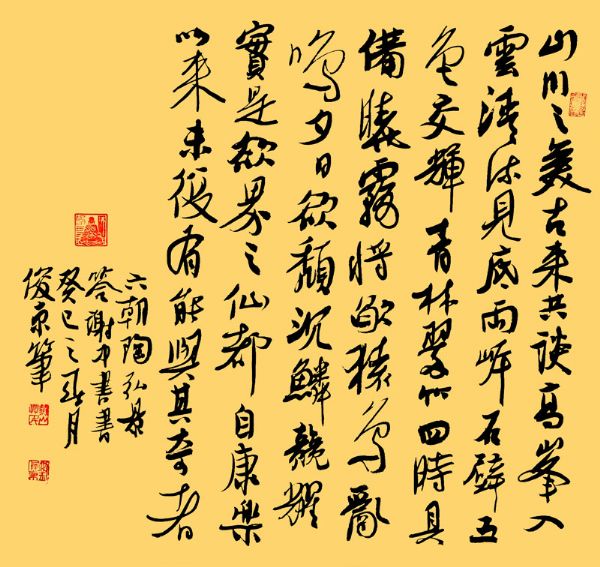 山川之美古来共談高峯入
雲清流見底兩岸石壁五
色交輝青林翠竹四時具
備曉霧將歇猿鳥亂
鳴夕日欲頹沉鱗競躍
實是欲界之仙都自康樂
以来未復有能與其奇者
六朝陶弘景
答謝中書書
癸巳之月
俊京筆